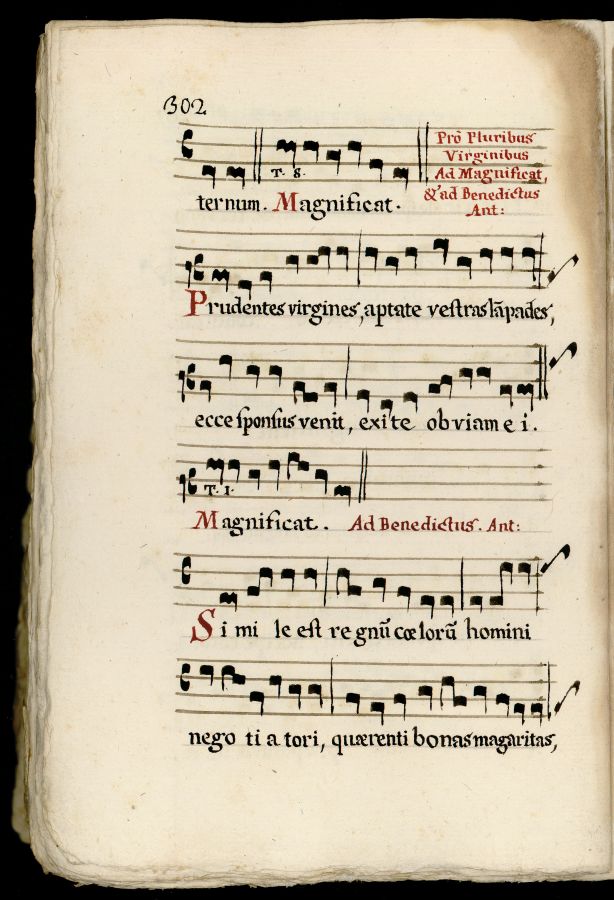 302
T. 8.
Prò Pluribus
Virginibus
Ad Magnificat,
& ad Benedictus
Ant:
ternum. Magnificat.
Prudentes virgines, aptate vestras lāpades,
ecce sponsus venit, exite obviam e i.
T. 1.
Magnificat. Ad Benedictus. Ant:
Si mi le est re gnū cœlorū homini
nego ti a tori, quærenti bonas magaritas,